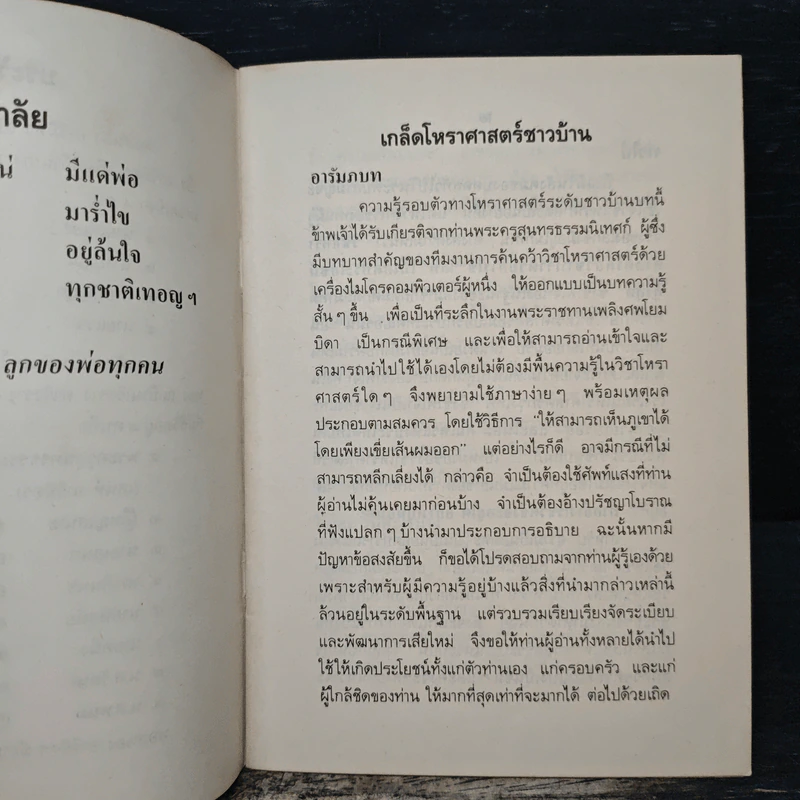 าลัย
น่ มีแด่พ่อ
มาร่ำไข
อยู่ล้นใจ
ทุกชาติเทอญ ๆ
ลูกของพ่อทุกคน
เกล็ดโหราศาสตร์ชาวบ้าน
อารัมภบท
ความรู้รอบตัวทางโหราศาสตร์ระดับชาวบ้านบทนี้
ข้าพเจ้าได้รับเกียรติจากท่านพระครูสุนทรธรรมนิเทศก์ ผู้ซึ่ง
มีบทบาทสำคัญของทีมงานการค้นคว้าวิชาโหราศาสตร์ด้วย
เครื่องไมโครคอมพิวเตอร์ผู้หนึ่ง ให้ออกแบบเป็นบทความรู้
สั้น ๆ ขึ้น เพื่อเป็นที่ระลึกในงานพระราชทานเพลิงศพโยม
บิดา เป็นกรณีพิเศษ และเพื่อให้สามารถอ่านเข้าใจและ
สามารถนำไปใช้ได้เองโดยไม่ต้องมีพื้นความรู้ในวิชาโหรา
ศาสตร์ใด ๆ จึงพยายามใช้ภาษาง่าย ๆ พร้อมเหตุผล
ประกอบตามสมควร โดยใช้วิธีการ "ให้สามารถเห็นภูเขาได้
โดยเพียงเขี่ยเส้นผมออก" แต่อย่างไรก็ดี อาจมีกรณีที่ไม่
สามารถหลีกเลี่ยงได้ กล่าวคือ จำเป็นต้องใช้ศัพท์แสงที่ท่าน
ผู้อ่านไม่คุ้นเคยมาก่อนบ้าง จำเป็นต้องอ้างปรัชญาโบราณ
ที่ฟังแปลก ๆ บ้างนำมาประกอบการอธิบาย ฉะนั้นหากมี
ปัญหาข้อสงสัยขึ้น ก็ขอได้โปรดสอบถามจากท่านผู้รู้เองด้วย
เพราะสำหรับผู้มีความรู้อยู่บ้างแล้วสิ่งที่นำมากล่าวเหล่านี้
ล้วนอยู่ในระดับพื้นฐาน แต่รวบรวมเรียบเรียงจัดระเบียบ
และพัฒนาการเสียใหม่ จึงขอให้ท่านผู้อ่านทั้งหลายได้นำไป
ใช้ให้เกิดประโยชน์ทั้งแก่ตัวท่านเอง แก่ครอบครัว และแก่
ผู้ใกล้ชิดของท่าน ให้มากที่สุดเท่าที่จะมากได้ ต่อไปด้วยเถิด